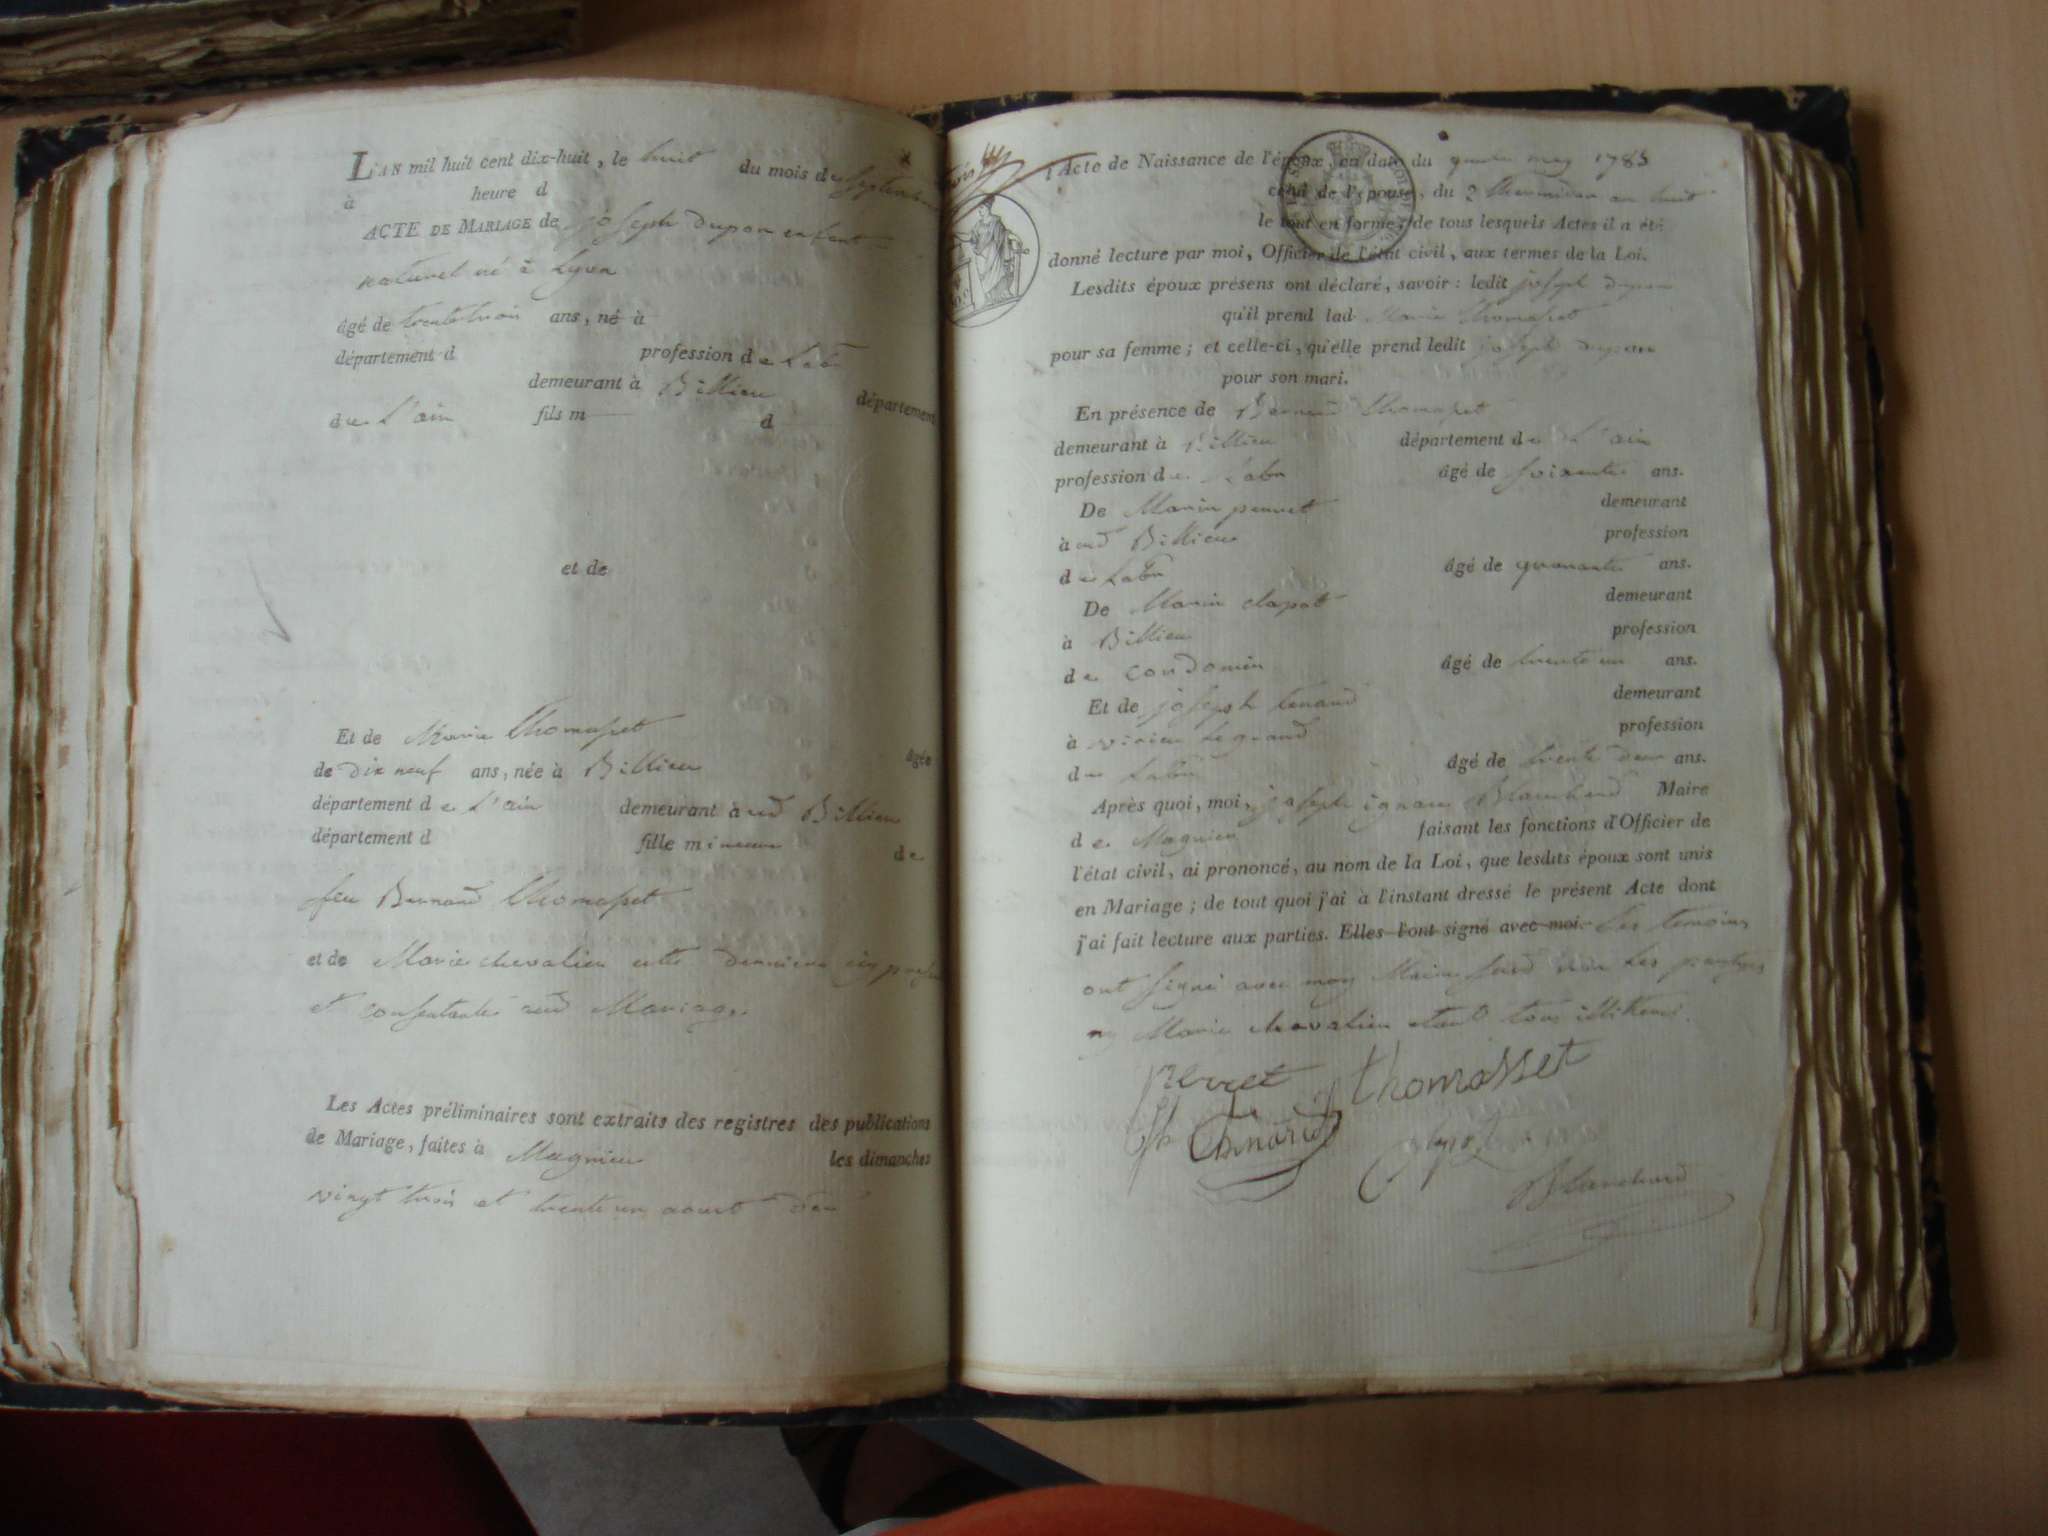 L'AN mil huit cent dix-huit, le huit du mois de septembre
à heure d
ACTE DE MARIAGE de joseph dupon enfant
naturel né à Lyon
âgé de trente trois ans, né à
département d profession de Labr
demeurant à Billieu département
de L'ain fils m d
et de
Et de Marie Thomasset âgée
de dix neuf ans, née à Billieu
département de L'ain demeurant aud Billieu
département d fille mineure de
feu Bernard Thomasset
et de Marie chevalier cette derniere icy presente
et consentante aud Mariage.
Les Actes préliminaires sont extraits des registres des publications
de Mariage, faites à Magnieu les dimanches
vingt trois et trente un aoust
l'Acte de Naissance de l'époux, en date du may 1785
celui de l'épouse, du 2 thermidor an huit
le tout en forme; de tous lesquels Actes il a été
donné lecture par moi, Officier de l'état civil, aux termes de la Loi.
Lesdits époux présens ont déclaré, savoir: ledit joseph dupon
qu'il prend lad Marie Thomasset
pour sa femme; et celle-ci, qu'elle prend ledit joseph dupon
pour son mari.
En présence de Bernard Thomasset
demeurant à Billieu département de L'ain
profession de Labr âgé de soixante ans.
De Marin perret demeurant
à aud Billieu profession
de Labr âgé de quarante ans.
De Marin clapot demeurant
à Billieu profession
de condomin âgé de trente un ans.
Et de joseph tenand demeurant
à virieu Le grand profession
de Labr âgé de trente deux ans.
Après quoi, moi, joseph ignace Blanchard Maire
de Magnieu faisant les fonctions d'Officier de
l'état civil, ai prononcé, au nom de la Loi, que lesdits époux sont unis
en Mariage; de tout quoi j'ai à l'instant dressé le présent Acte dont
j'ai fait lecture aux parties. Elles l'ont signé avec moi. Les temoins
ont signé avec moy Maire susd non Les parties
ny Marie chevalier etant tous illitérés.
perret thomasset
jph tenand clapot
Blanchard